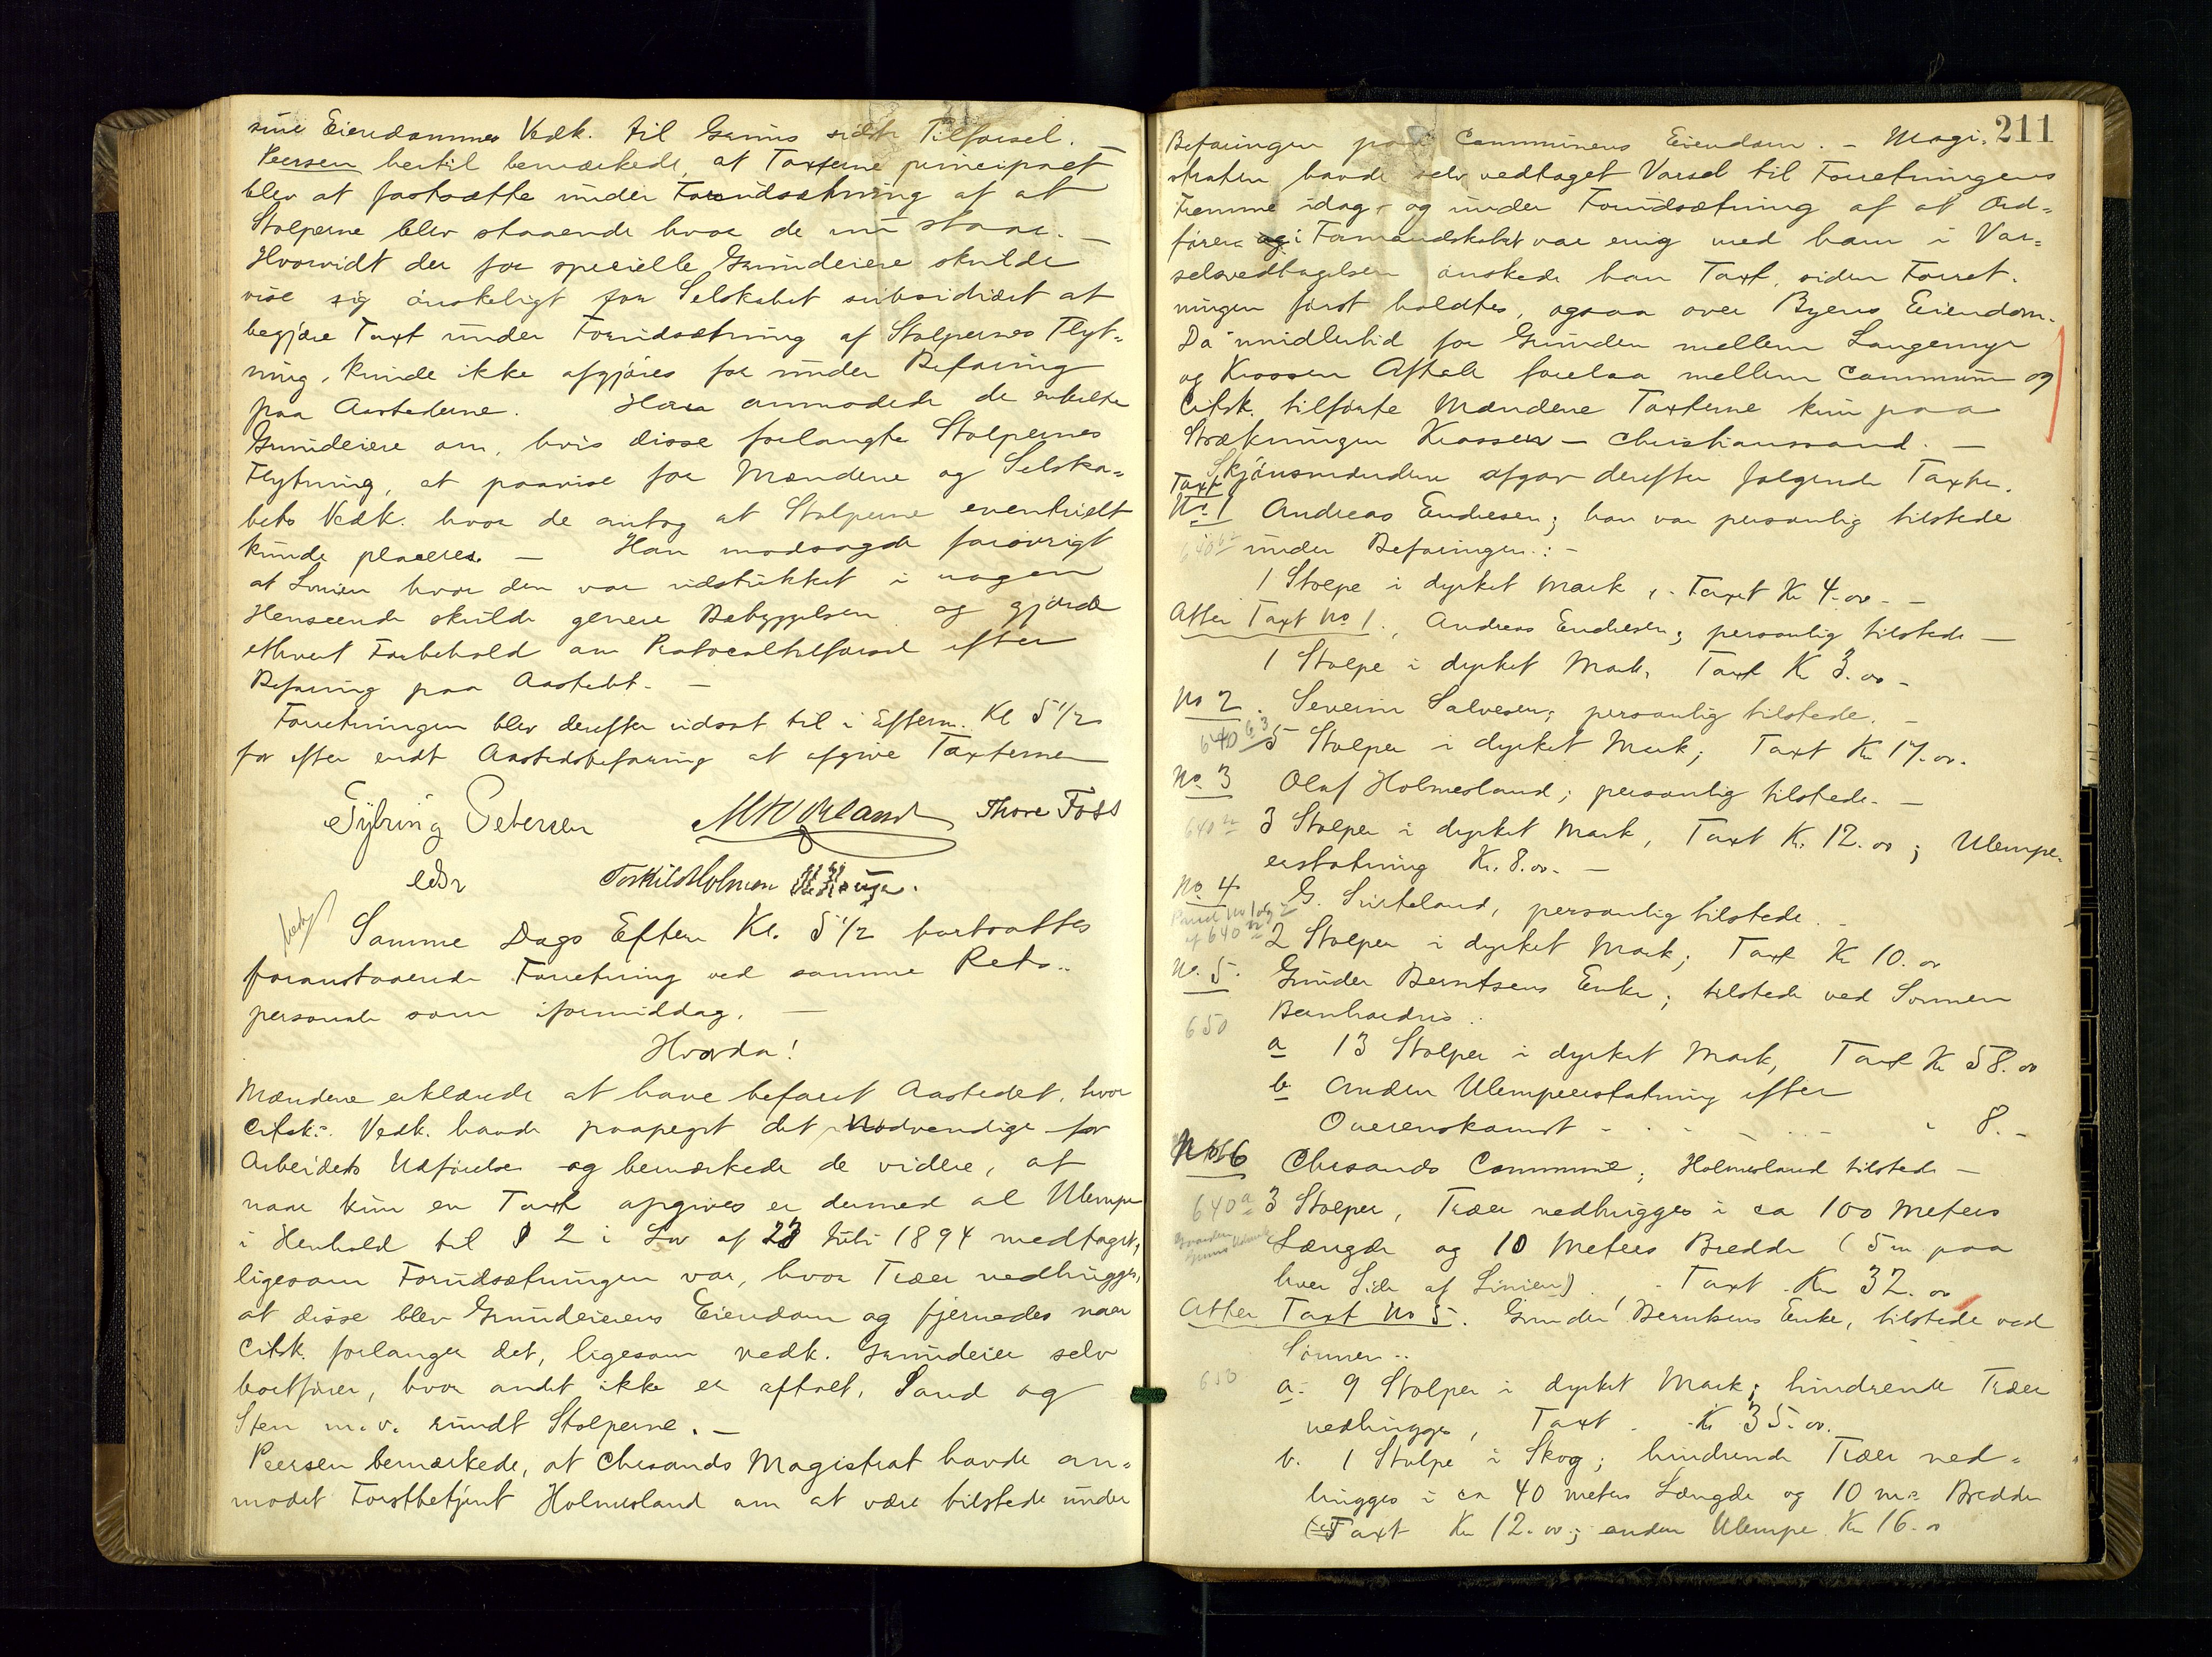 sine Eiendommes Vedk. til Grims sidste Tilførsel. —
Peersen hertil bemærkede, at Taxterne principalt
blev at fastsætte under Forudsætning af at
Stolperne blev staaende hvor de nu staar. —
Hvorvidt der for specielle Grundeiere skulde
vise sig ønskeligt for Selskabet subsidiært at
begjære Taxt under Forudsætning af Stolpernes Flyt-
ning, kunde ikke afgjøres før under Befaring
paa Aastederne. Han anmodede de enkelte
Grundeiere om, hvis disse forlangte Stolpernes
Flytning, at paavise for Mændene og Selska-
bets Vedk. hvor de antog at Stolperne eventuelt
kunde placeres. — Han modsagde forøvrigt
at Linien hvor den var udstukket i nogen
Henseende skulde genere Bebyggelsen og gjorde
ethvert Forbehold om Protocoltilførsel efter
Befaring paa Aastedet. —
Forretningen blev derefter udsat til i Efterm. Kl 5 1/2
for efter endt Aastedsbefaring at afgive Taxterne
Tybring Petersen Thore Foss
edsv Torkild Holmen
Samme Dags Efterm Kl. 5 1/2 fortsattes
foranstaaende Forretning ved samme Rets-
personale som iformiddag. —
Hvorda!
Mændene erklærede at have befaret Aastedet, hvor
Citsk. Vedk. havde paapeget det nødvendige for
Arbeidets Udførelse og bemærkede de videre, at
naar kun en Taxt opgives er dermed al Ulempe
i Henhold til § 2 i Lov af 23 Juli 1894 medtaget,
ligesom Forudsætningen var, hvor Træer nedhugges,
at disse blev Grundeierens Eiendom og fjernedes naar
Citsk. forlanger det, ligesom vedk. Grundeier selv
bortfører, hvor andet ikke er aftalt, Sand og
Sten m.v. rundt Stolperne. —
Peersen bemærkede, at Chrsands Magistrat havde an-
modet Forstbetjent Holmesland om at være tilstede under
211
Befaringen paa Communens Eiendom. — Magi-
straten havde selv vedtaget Varsel til Forretningens
Fremme idag, og under Forudsætning af at Ord-
føreren i Formandskabet var enig med ham i Var-
selsvedtagelsen ønskede han Taxt, siden Forret-
ningen først holdtes, ogsaa over Byens Eiendom.
Da imidlertid for Grunden mellem Langemyr
og Krossen Aftale forelaa mellem Commun og
Citsk. tilførte Mændene Taxterne kun paa
Strækningen Krossen — Christianssand. —
Skjønsmændene afgav derefter følgende Taxter.
Taxt
No 1 Andreas Endresen; han var personlig tilstede
640 under Befaringen: —
1 Stolpe i dyrket Mark, Taxt Kr 4.00 —
Atter Taxt No 1., Andreas Endresen; personlig tilstede —
1 Stolpe i dyrket Mark, Taxt Kr 3.00 —
No 2. Severin Salvesen; personlig tilstede. —
640 63 5 Stolper i dyrket Mark; Taxt Kr 17.00.
No 3 Olaf Holmesland; personlig tilstede. —
640 3 Stolper i dyrket Mark, Taxt Kr. 12.00; Ulempe-
erstatning Kr. 8.00. —
No 4 G. Suteland, personlig tilstede. —
af 640 2 Stolper i dyrket Mark; Taxt Kr 10.00
No. 5. Gunder Berntsens Enke; tilstede ved Sønnen
650 Bernhardus.
a 13 Stolper i dyrket Mark, Taxt Kr 58.00
b Anden Ulempeerstatning efter
Overenskomst - - - 8.-
No 6 Chrsands Commune; Holmesland tilstede —
640 a 3 Stolper, Træer nedhugges i ca 100 Meters
Længde og 10 Meters Bredde (5 m paa
hver Side af Linien). Taxt Kr 32.00
Atter Taxt No 5. Gunder Berntsens Enke, tilstede ved
Sønnen..
650 a. 9 Stolper i dyrket Mark; hindrende Træer
nedhugges, Taxt Kr 35.00.
b. 1 Stolpe i Skog; hindrende Træer ned-
hugges i ca 40 meters Længde og 10 m.s Bredde
Taxt Kr 12.00; anden Ulempe Kr 16.00